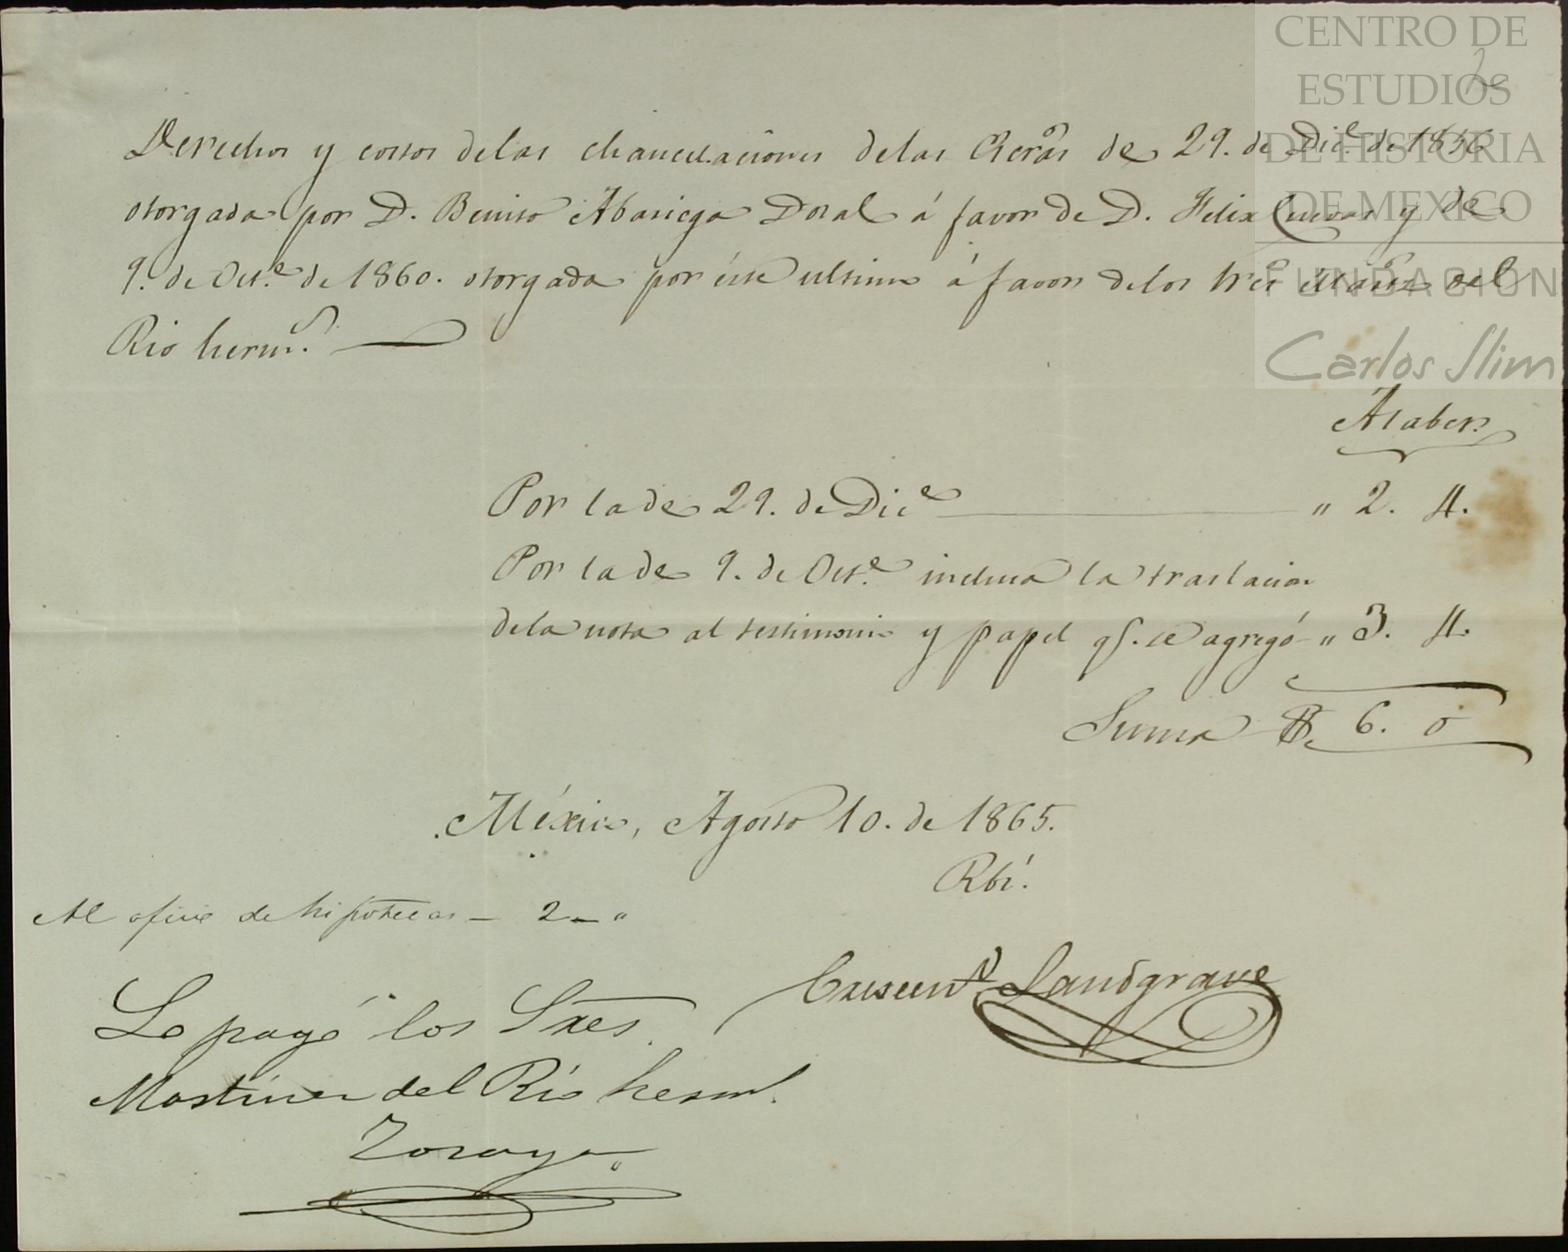 CENTRO DE
ESTUDIOS
DE HISTORIA
DE MEXICO
FUNDACIÓN
Carlos Slim
2
Derechos y costos de las chancelaciones de las Escrãs de 29. de Dice. de 1856
otorgada por D. Benito Abariega Dosal á favor de D. Felix Cuevas y de
9. de Oct.e de 1860. otorgada por éste ultimo á favor de los Sres Martz del
Rio herm.s
Á saber.
Por la de 29. de Dic.e " 2. 4.
Por la de 9. de Oct.e inclusa la traslacion
de la nota al testimonio y papel q.e se agregó " 3. 4.
Suma $ 6. 0
México, Agosto 10. de 1865.
Rbí.
Al oficio de hipotecas — 2 — "
Crescen.o Landgrave
Lo pagó los Sres.
Martinez del Rio herms.
Zoraya.